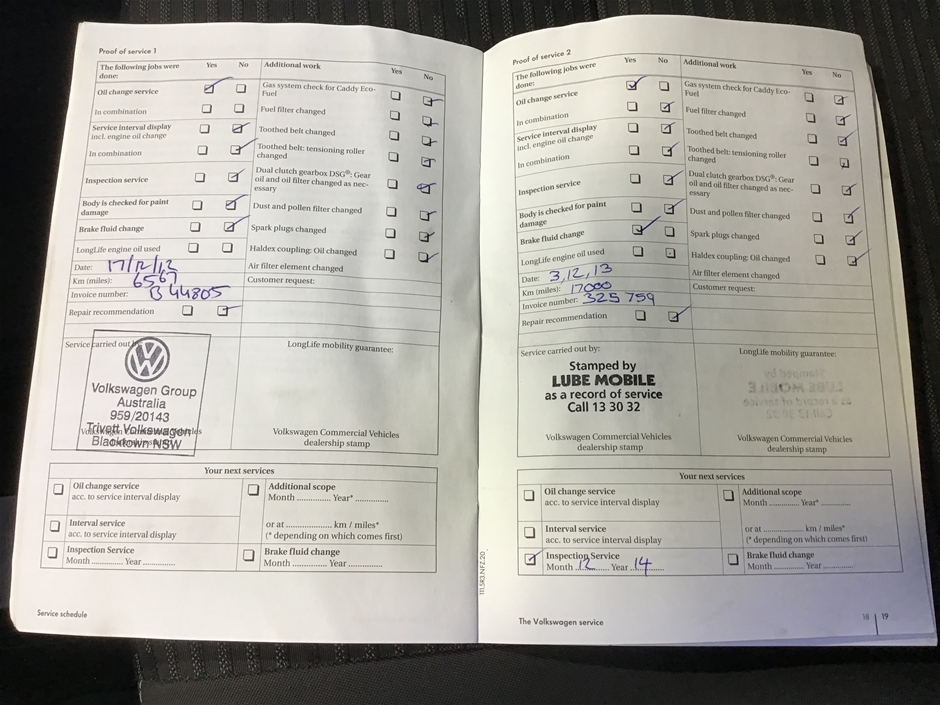 Proof of service 1
The following jobs were done: Yes No
Oil change service
In combination
Service interval display
incl. engine oil change
In combination
Inspection service
Body is checked for paint
damage
Brake fluid change
LongLife engine oil used
Date: 17/12/12
Km (miles): 6567
Invoice number: B 44805
Repair recommendation
Additional work Yes No
Gas system check for Caddy Eco-
Fuel
Fuel filter changed
Toothed belt changed
Toothed belt: tensioning roller
changed
Dual clutch gearbox DSG®: Gear
oil and oil filter changed as nec-
essary
Dust and pollen filter changed
Spark plugs changed
Haldex coupling: Oil changed
Air filter element changed
Customer request:
Service carried out
Volkswagen Group
Australia
959/20143
Trivett Volkswagen
Blacktown NSW
LongLife mobility guarantee:
Volkswagen Commercial Vehicles
dealership stamp
Your next services
Oil change service
acc. to service interval display
Interval service
acc. to service interval display
Inspection Service
Month ............. Year .............
Additional scope
Month ............. Year* .............
or at .................. km / miles*
(* depending on which comes first)
Brake fluid change
Month ............. Year .............
Service schedule
Proof of service 2
The following jobs were
done: Yes No
Oil change service
In combination
Service interval display
incl. engine oil change
In combination
Inspection service
Body is checked for paint
damage
Brake fluid change
LongLife engine oil used
Date: 3,12,13
Km (miles): 17000
Invoice number: 325 759
Repair recommendation
Additional work Yes No
Gas system check for Caddy Eco-
Fuel
Fuel filter changed
Toothed belt changed
Toothed belt: tensioning roller
changed
Dual clutch gearbox DSG®: Gear
oil and oil filter changed as nec-
essary
Dust and pollen filter changed
Spark plugs changed
Haldex coupling: Oil changed
Air filter element changed
Customer request:
Service carried out by:
Stamped by
LUBE MOBILE
as a record of service
Call 13 30 32
Volkswagen Commercial Vehicles
dealership stamp
LongLife mobility guarantee:
Volkswagen Commercial Vehicles
dealership stamp
Your next services
Oil change service
acc. to service interval display
Interval service
acc. to service interval display
Inspection Service
Month 12 Year 14
Additional scope
Month ............. Year* .............
or at .................. km / miles*
(* depending on which comes first)
Brake fluid change
Month ............. Year .............
The Volkswagen service
18 | 19